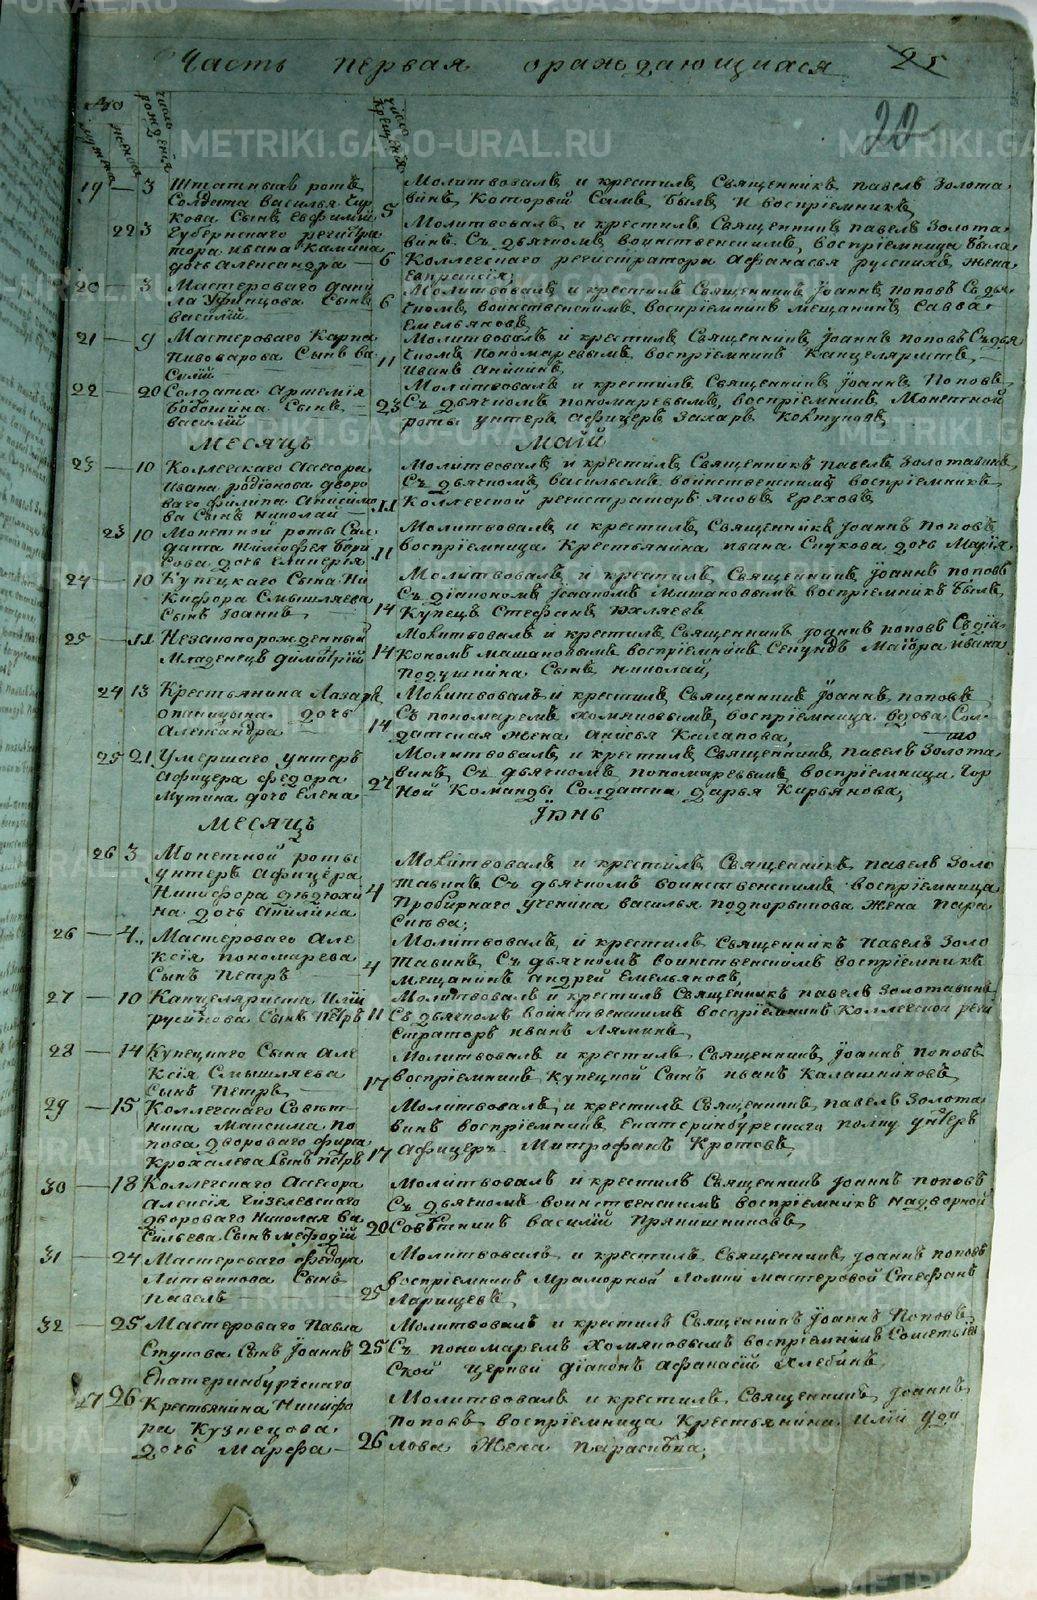 Часть первая ораждающихся
25
20
№
мужеска
женска
число рождения
число крещения
19 — 3 Штатныя роты
Солдата Василья
кова Сынъ Евфимий
5
Молитвовалъ и крестилъ Священникъ павелъ Золота
винъ, Который Самъ былъ и восприемникъ,
22 3 Губернскаго регистра
тора ивана Камина
дочь Александра — 6
Молитвовалъ и крестилъ Священникъ павелъ Золота
винъ. Съ дьячкомъ воинственскимъ, восприемница была
Коллегскаго регистратора афанасья русскихъ жена
Евпраксія;
20 — 3 Мастероваго дани
ла Уфинцова Сынъ
василій
6
Молитвовалъ и крестилъ Священникъ Іоаннъ поповъ Съ дья
чкомъ, воинственскимъ, восприемникъ мещанинъ Савва
Емельяновъ,
21 — 9 Мастероваго Карпа
Пивоварова Сынъ ва
Силій
11
Молитвовалъ и крестилъ Священникъ, Іоаннъ поповъ Съ дья
чкомъ, пономаревымъ, восприемникъ Канцеляристъ, —
иванъ
22 — 20 Солдата Артемія
Сынъ —
василій
23
Молитвовалъ и крестилъ Священникъ Іоаннъ Поповъ
Съ дьячкомъ пономаревымъ, восприемникъ. Монетной
роты унтеръ афицеръ Захаръ Ковтуновъ,
Месяцъ Май
23 — 10 Коллегскаго Ассесора
ивана родионова дворо
ваго филипа анисимо
ва Сынъ николай —
11
Молитвовалъ и крестилъ Священникъ павелъ Золотавинъ,
Съ дьячкомъ, васильемъ воинственскимъ восприемникъ
Коллегской регистраторъ яковъ Греховъ
23 10 Монетной роты Сол
дата тимофея бори
Сова дочь Гликерія
11
Молитвовалъ, и крестилъ, Священникъ Іоаннъ поповъ
восприемница Крестьянина ивана Слукова дочь Марія
24 — 10 Купецкаго Сына Ни
Кифора Смышляева
Сынъ Іоаннъ
14
Молитвовалъ и крестилъ, Священникъ, Іоаннъ поповъ
Съ діакономъ Іоанномъ Машановымъ восприемникъ былъ,
Купецъ Стефанъ Яхляевъ
25 — 11 Незаконорожденный
Младенецъ димитрий
14
Молитвовалъ и крестилъ, Священникъ Іоаннъ поповъ Съ діа
кономъ машановымъ восприемникъ Секундъ Маіора ивана
подушкина Сынъ николай,
24 13 Крестьянина Лазаря
опаницына дочь
Александра —
14
Молитвовалъ и крестилъ, Священникъ Іоаннъ поповъ
Съ пономаремъ хомяковымъ, восприемница вдова Сол-
датская жена анисья Калапова,
25 21 Умершаго унтеръ
Афицера федора
Мутина дочь Елена
27
Молитвовалъ, и крестилъ, Священникъ, павелъ Золота
винъ, Съ дьячкомъ, пономаревымъ, восприемница, Гор
ной Команды Солдатка дарья Кирьянова,
Месяцъ Іюнь
26 3 Монетной роты
унтеръ афицера
Никифора дѣдюхи
на дочь Акилина
4
Молитвовалъ и крестилъ, Священникъ, павелъ Золо
тавинъ Съ дьячкомъ воинственскимъ восприемница
Пробирнаго ученика василья подкорытова жена пара
Скева;
26 — 4 Мастероваго Але
ксія пономарева
Сынъ Петръ —
4
Молитвовалъ, и крестилъ Священникъ павелъ Золо
тавинъ, Съ дьячкомъ воинственскимъ восприемникъ
Мещанинъ андрей Емельяновъ,
27 — 10 Канцеляриста Иліи
русинова Сынъ Петръ
11
Молитвовалъ и крестилъ Священникъ павелъ Золотавинъ
Съ дьячкомъ воинственскимъ восприемникъ Коллегской реги
страторъ иванъ Ляминъ,
28 — 14 Купецкаго Сына Але
Ксія Смышляева
Сынъ Петръ —
17
Молитвовалъ и крестилъ, Священникъ, Іоаннъ поповъ
восприемникъ Купецкой Сынъ иванъ Калашниковъ,
29 — 15 Коллегскаго Совѣт
ника Максима по
пова двороваго фирса
Крохалева Сынъ Петръ
17
Молитвовалъ, и крестилъ Священникъ, павелъ Золота
винъ восприемникъ Екатеринбургскаго полку унтеръ
Афицеръ Митрофанъ Кротовъ,
30 — 18 Коллегскаго Ассесора
Алексія Гизелевскаго
двороваго Николая Ва
Сильева Сынъ мефодий
20
Молитвовалъ и крестилъ Священникъ Іоаннъ поповъ
Съ дьячкомъ воинственскимъ восприемникъ Надворной
Совѣтникъ василій Прянишниковъ,
31 — 24 Мастероваго федора
Литвинова Сынъ
Павелъ —
25
Молитвовалъ и крестилъ Священникъ, Іоаннъ поповъ
восприемникъ Мраморной Ломки мастеровой Стефанъ
Ларищевъ,
32 — 25 Мастероваго Павла
Ступова Сынъ Іоаннъ
25
Молитвовалъ и крестилъ Священникъ Іоаннъ Поповъ
Съ пономаремъ Хомяковымъ восприемникъ
Ской Церкви діаконъ афанасій Хлебинъ
27 26 Екатеринбургскаго
Крестьянина Никифо
ра Кузнецова
дочь Марфа —
26
Молитвовалъ и крестилъ, Священникъ, Іоаннъ
поповъ, восприемница Крестьянина. иліи
лова жена параскева;
METRIKI.GASO-URAL.RU